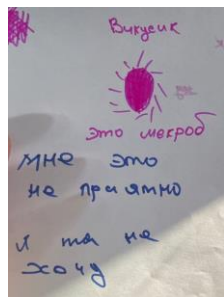 Викусик
это микроб
мне это
не приятно
и та не
хочу